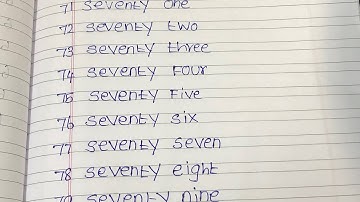 71 seventy one
72 seventy two
73 seventy three
74 seventy Four
75 seventy Five
76 seventy six
77 seventy seven
78 seventy eight
79 seventy nine